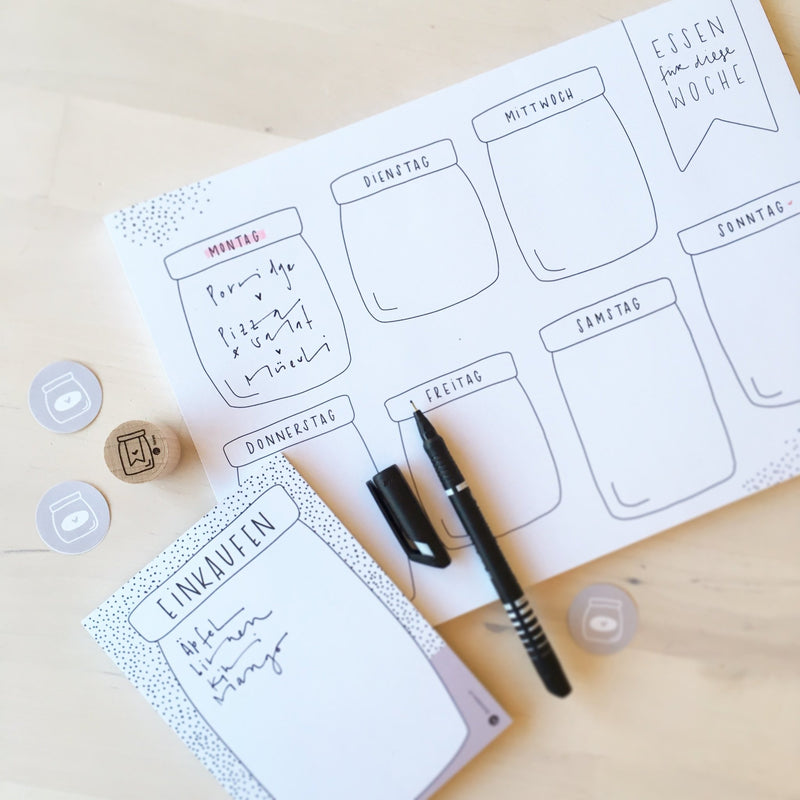 ESSEN
für diese
WOCHE
MITTWOCH
DIENSTAG
MONTAG
Porridge
Pizza
x Salat
Müsli
SONNTAG
SAMSTAG
FREITAG
DONNERSTAG
EINKAUFEN
Äpfel
Mango